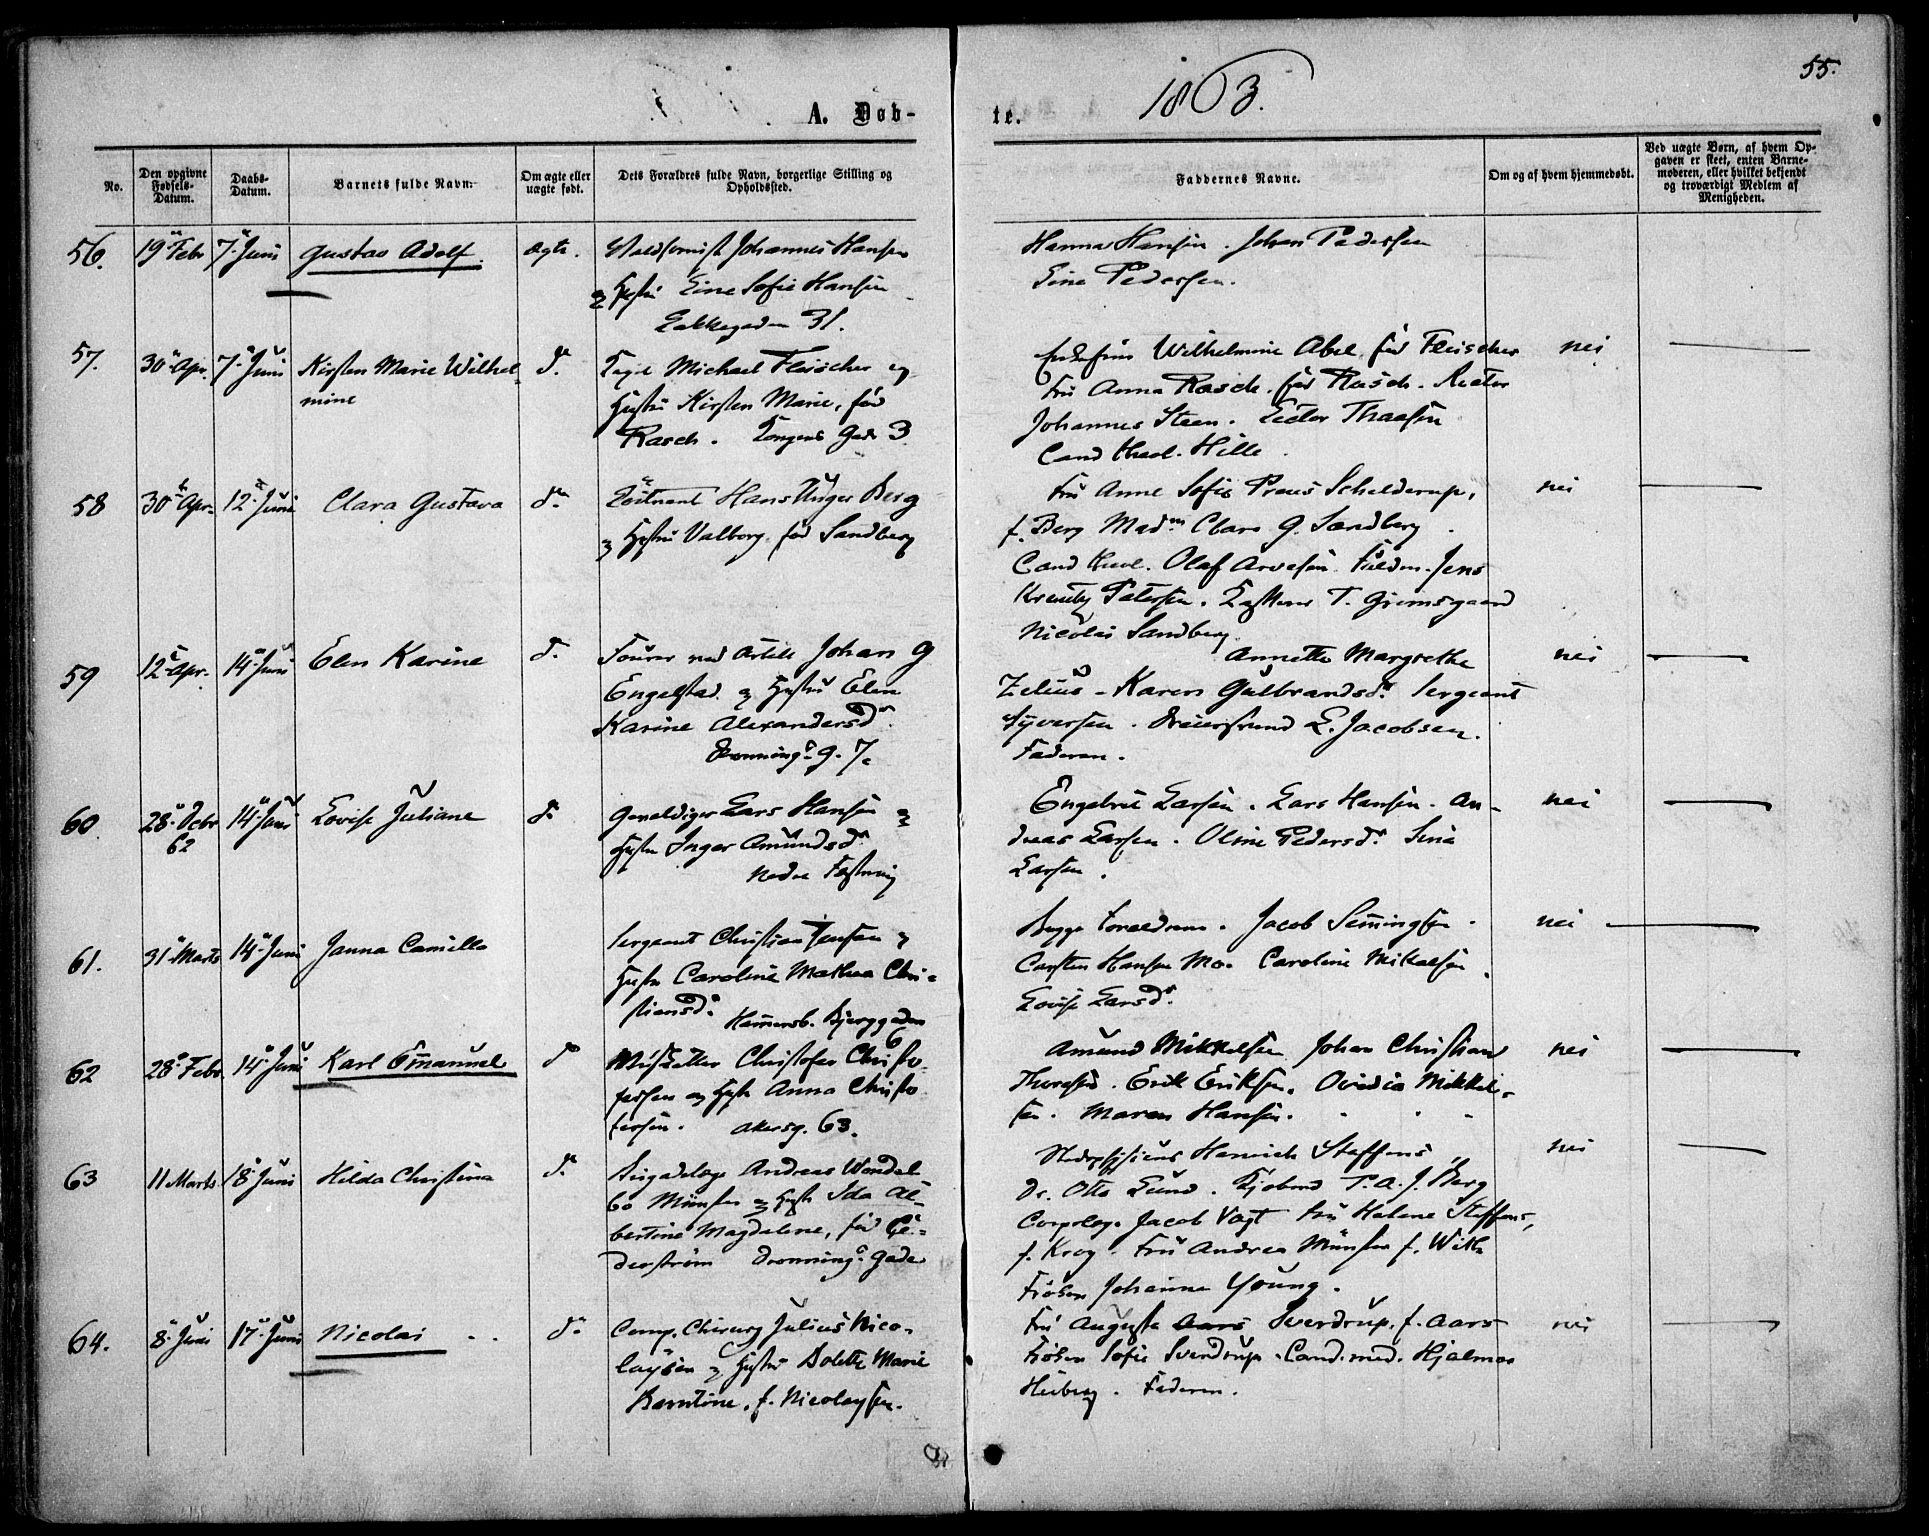 55.
1863.
A. Døb-
te.
No.
Den opgivne Fødsels-Datum.
Daabs-Datum.
Barnets fulde Navn.
Om ægte eller uægte født.
Dets Forældres fulde Navn, borgerlige Stilling og Opholdssted.
Faddernes Navne.
Om og af hvem hjemmedøbt.
Ved uægte Børn, af hvem Op-
gaven er skeet, enten Barne-
moderen, eller hvilket bekjendt
og troværdigt Medlem af
Menigheden.
56. 19 Febr 7 Juni Gustav Adolf. ægte. Johannes Hansen
Hustru Line Sofie Hansen
31.
Hanna Hansen. Johan Pedersen
Line Pedersen.
57. 30 Apr. 7 Juni Kirsten Marie Wilhel-
mine
d. Michael Fleischer og
Hustru Kirsten Marie, fød
Rasch. Kongens Gade 3
Wilhelmine Abel fød Fleischer nei
Fru Anna Rasch. fød Rasch. Rector
Johannes Steen. Thaasen
Cand theol. Hille
58 30 Apr. 12 Juni Clara Gustava d. Løitnant Hans Unger Berg
og Hustru Valborg fød Sandberg
Fru Anne Sofie Preus Schelderup, nei
f. Berg Mad. Clara G. Sandberg.
Cand theol. Olaf Arvesen. Fuldm. Jens
Petersen. T. Grimsgaard
Nicolai Sandberg.
59 12 Apr. 14 Juni Elen Karine d. Fourer ved Artill Johan G
Engelstad og Hustru Elen
Karine Alexandersd.
Dronning. g. 7.
Annette Margrethe nei
Zelius - Karen Gulbrandsd. Sergeant
Syversen. L. Jacobsen.
Faderen.
60 28 Debr 62 14 Juni Lovise Juliane d. Gevaldiger Lars Hansen og
Hustru Inger Amundsd.
nedre Fæstning
Engebret Larsen. Lars Hansen. An-
dreas Larsen. Oline Pedersd.
Larsen.
nei
61. 31 Marts 14 Juni Janna Camilla
Sergeant Christian Jensen og
Hustru Caroline Mathea Chri-
stiansd. Hammersb. Bjerggaden
6
Begge Forældrene. Jacob Semmingsen. nei
Carsten Hansen Mo. Caroline Mikaelsen.
Lovise Larsd.
62 28 Febr. 14 Juni Karl Emanuel d. Christofer Christo-
fersen og Hustru Anna Christo
fersen. Akersg. 63.
Amund Mikkelsen Johan Christian nei
Erik Eriksen. Ovidia Mikkel-
sen. Maren Hansen.
63 11 Marts 18 Juni Hilda Christina d. Brigadelæge Andreas Wendel-
bo Münster og Hustru Ida Al-
bertine Magdalene, fød Ce-
derstrøm Dronning. Gade
Stadsphysicus Henrich Steffens, nei
Dr. Otto Lund. Kjøbmd P. A. J. Berg
Corpslæge Jacob Vogt Fru Helene Steffens,
f. Krog. Fru Andrea Münster f. With
Frøken Johanne Young.
64. 8 Juni 17 Juni Nicolai d. Comp. Chirurg Julius Nico-
laysen og Hustru Bolette Marie
Berntine, f. Nicolaysen.
Fru Augusta Aars Sverdrup, f. Aars nei
Frøken Sofie Sverdrup. Cand. med. Hjalmar
Heiberg. Faderen.